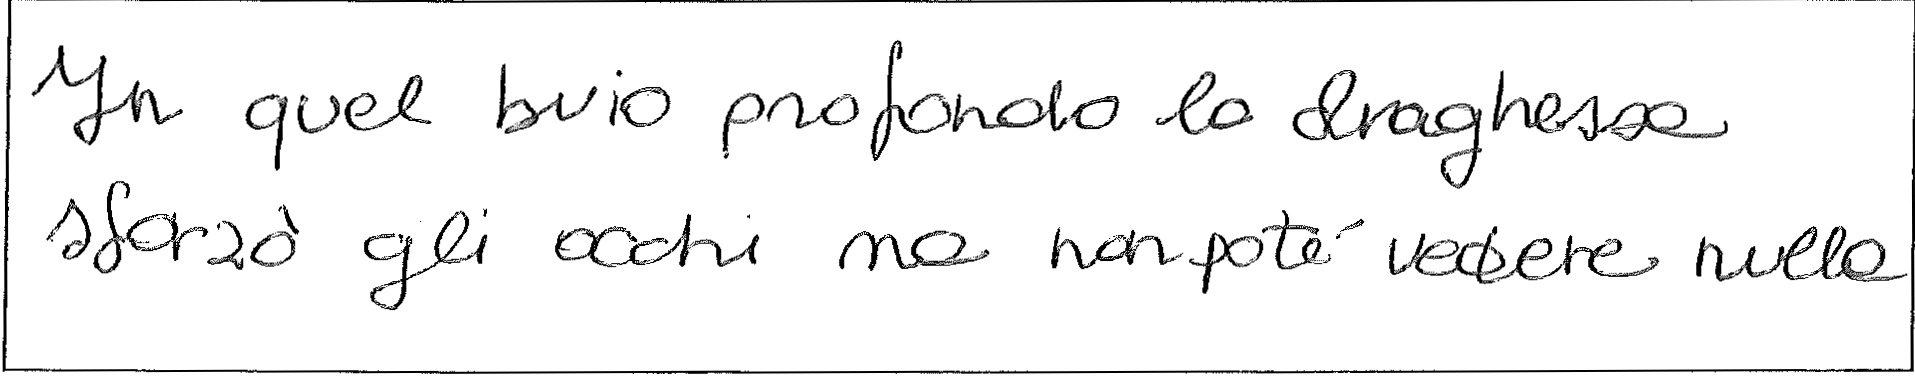 In quel buio profondo la draghessa
sforzò gli occhi ma non poté vedere nulla